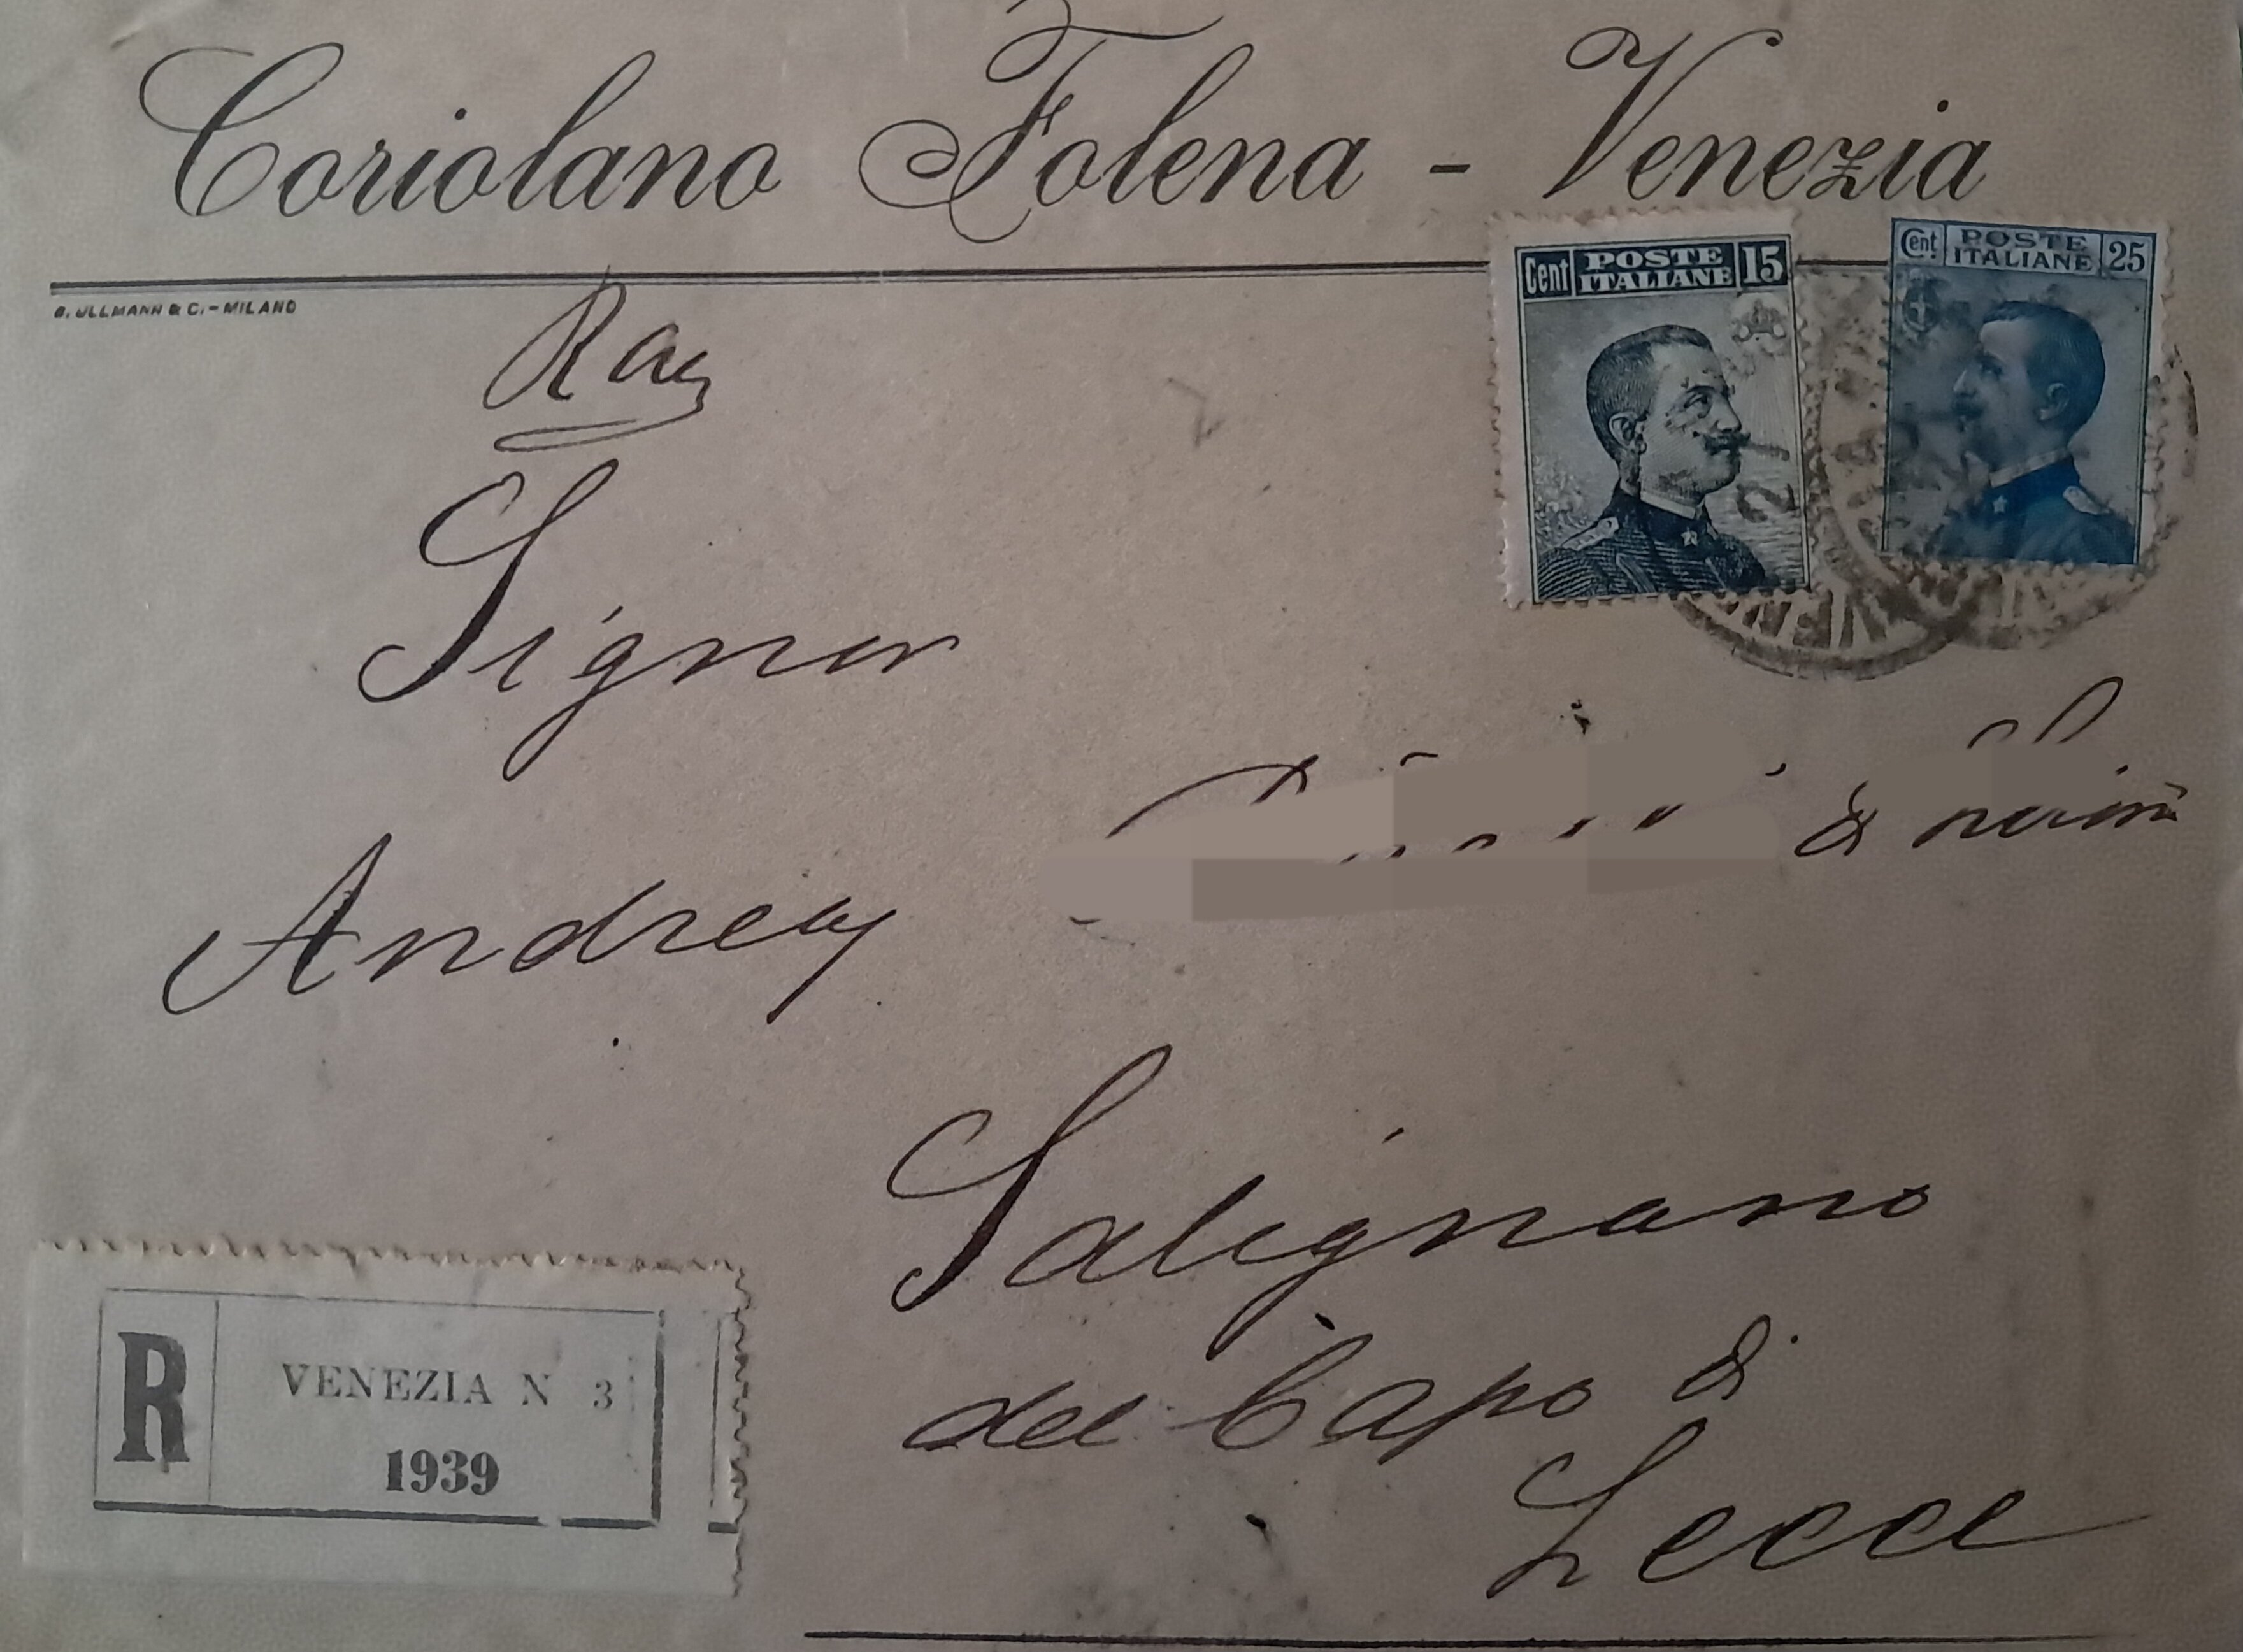 Coriolano Folena - Venezia
Cent POSTE ITALIANE 15
Cent POSTE ITALIANE 25
G. ULLMANN & C. - MILANO
Rac
Signor
Andrea di
Salignano
del Capo di
Lecce
R
VENEZIA N 3
1939